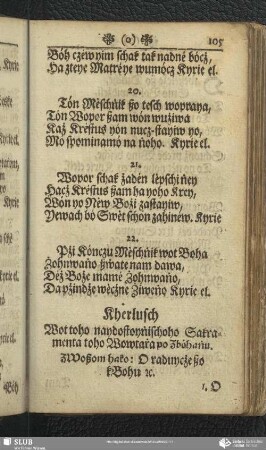 (o) 105
Bóh czewyim schak tak nadné bócz,
Ha zteye Matréye wumócz Kyrie el.
20.
Tón Mèschnik ßo tesch wopraya,
Tón Wopor ßam wón wuziwa
Kaž Krèstus yón nucz-stayiw yo,
Mó spominamó na ñoho. Kyrie el.
21.
Wopor schak žadén lèpschi ñey
Hacž Krèstus ßam ha yoho Krey,
Wón yo Nèw Boži zastayiw,
Yewach bó Swèt schón zahinéw. Kyrie
22.
Pži Kónczu Mèschnik wot Boha
Žohnwañó žwate nam dawa,
Déž Bože mamé Žohnwañó,
Da pžindże wèczne Žiweñó Kyrie el.
Kherlusch
Wot toho naydostoynischoho Sakra-
menta toho Wowtaŕa po
Woßom hako: O radwycže ßo
k Bohu ꝛc.
1. O
SLUB